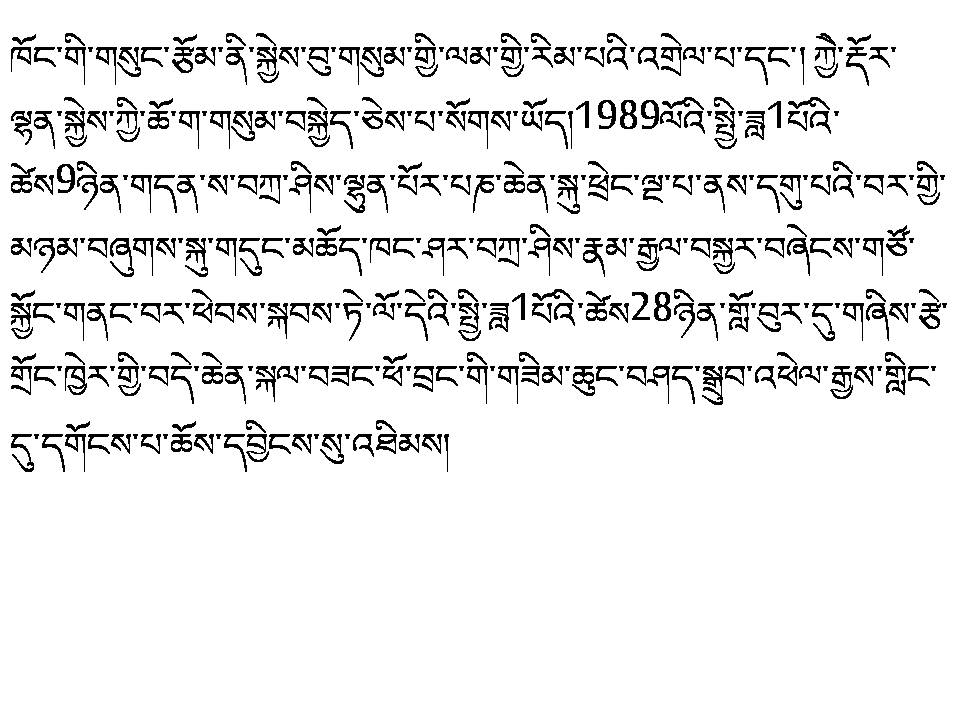 ཁོང་གི་གསུང་རྩོམ་ནི་སྐྱེས་བུ་གསུམ་གྱི་ལམ་གྱི་རིམ་པའི་འགྲེལ་པ་དང་། ཀྱཻ་རྡོར་
ལྷན་སྐྱེས་ཀྱི་ཆོ་ག་གསུམ་བསྐྱེད་ཅེས་པ་སོགས་ཡོད།1989ལོའི་སྤྱི་ཟླ1པོའི་
ཚེས9ཉིན་གདན་ས་བཀྲ་ཤིས་ལྷུན་པོར་པཎ་ཆེན་སྐུ་ཕྲེང་ལྔ་པ་ནས་དགུ་པའི་བར་གྱི་
མཉམ་བཞུགས་སྐུ་གདུང་མཆོད་ཁང་ཤར་བཀྲ་ཤིས་རྣམ་རྒྱལ་བསྐྱར་བཞེངས་གཙོ་
སྐྱོང་གནང་བར་ཕེབས་སྐབས་ཏེ་ལོ་དེའི་སྤྱི་ཟླ1པོའི་ཚེས28ཉིན་གློ་བུར་དུ་གཞིས་རྩེ་
གྲོང་ཁྱེར་གྱི་བདེ་ཆེན་སྐལ་བཟང་ཕོ་བྲང་གི་གཟིམ་ཆུང་བཤད་སྒྲུབ་འཕེལ་རྒྱས་གླིང་
དུ་དགོངས་པ་ཆོས་དབྱིངས་སུ་འཐིམས།